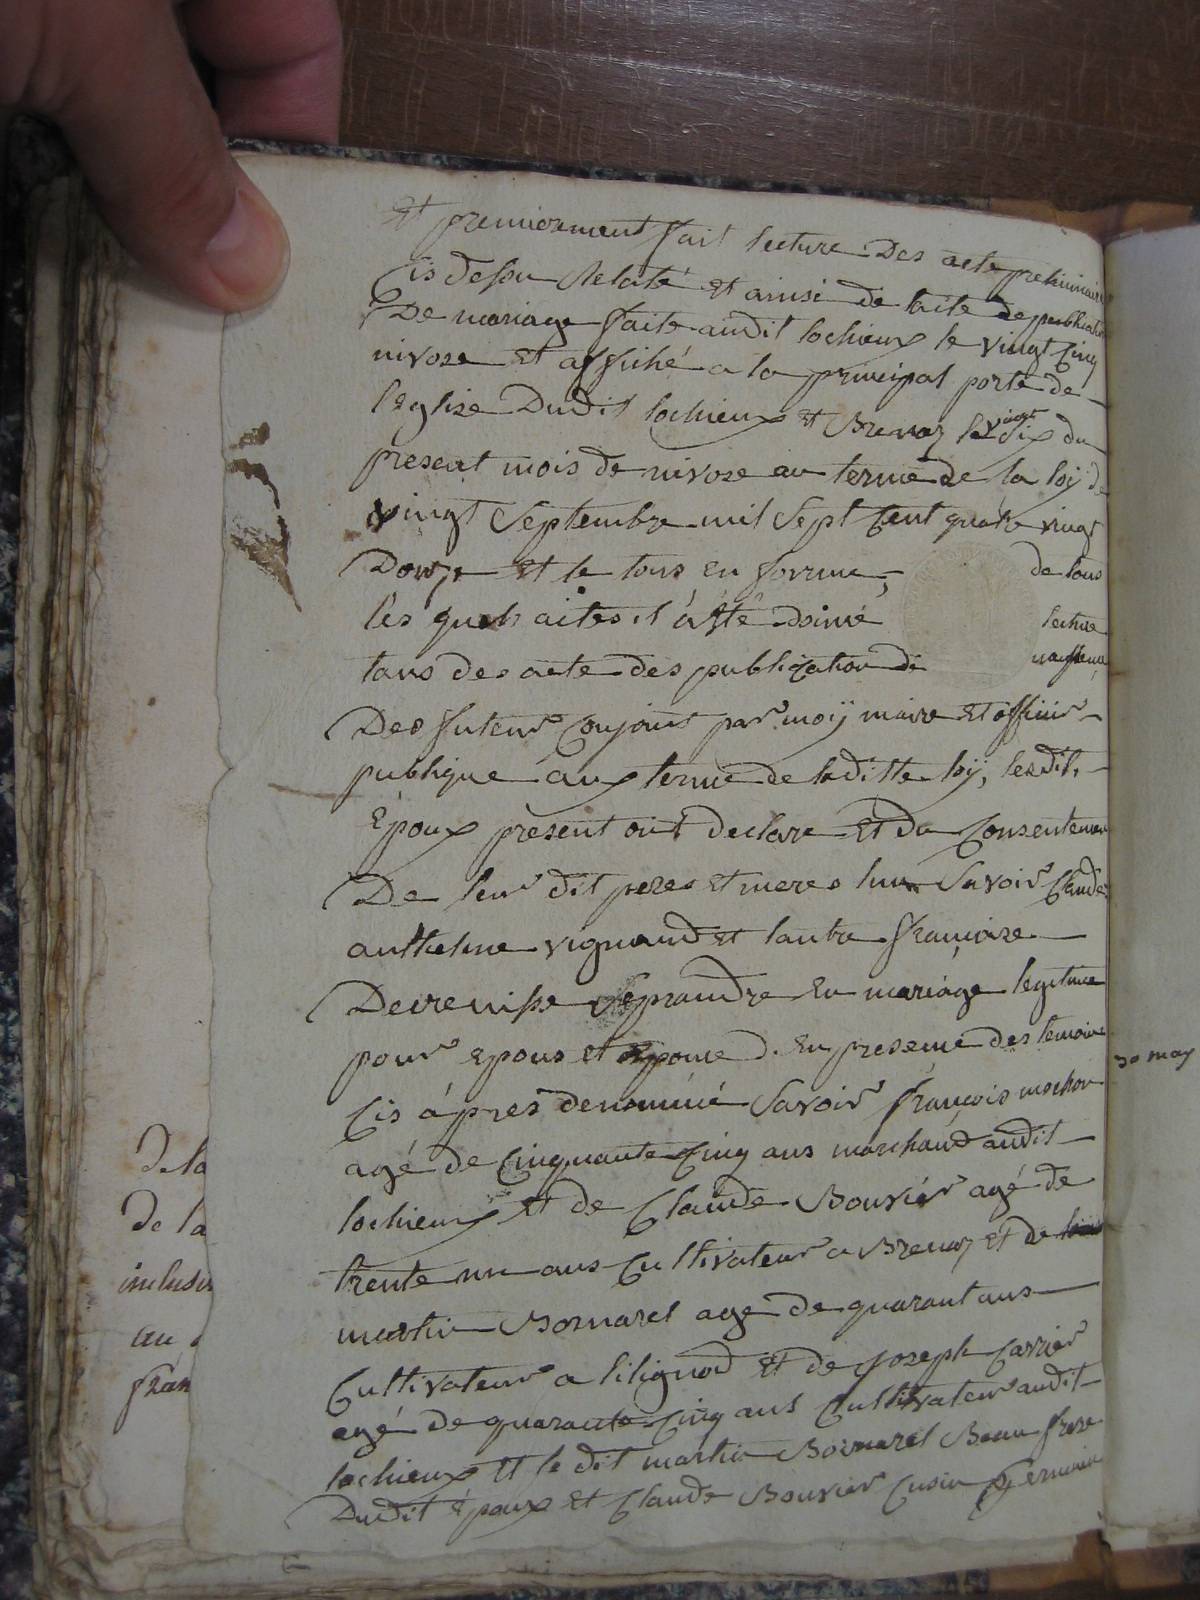 Et premierement fait lecture Des acte preliminaire
Cis dessu Relaté et ainsi de lacte de publication
De mariage faite audit lochieux le vingt Cinq
nivose et affiché a la principal porte de
leglise Dudit lochieux et Brenaz le vingt dix du
present mois de nivose au terme de la loij de
vingt Septembre mil Sept Cent quatre vingt
Douze et le tous en forme, de tous
les quels actes il à été doné lecture
tans des acte des publication de
Des futeur Conjoint par moij maire et officier
publique aux terme de laditte loij, lesdit
Epoux present ont declare et du Consentemen
De leur dit peres et meres lun Savoir Claude
anthelme vignaud et lautre françoise
Se prandre en mariage legitime
pour epoux et epouse D. En presence des temoin
Cis àpres denommé Savoir françois mochon
agé de Cinquante Cinq ans marchand audit
lochieux et de Claude Bouvier agé de
trente un ans Cultivateur a Brenaz et de
martin Bornarel age de quarant ans
Cultivateur a lilignod et de Joseph Carrier
agé de quarante Cinq ans Cultivateur audit
lochieux et le dit martin Bornarel Beau frere
Dudit époux et Claude Bouvier Cusin germain
30 may
De la
De la
au
fran